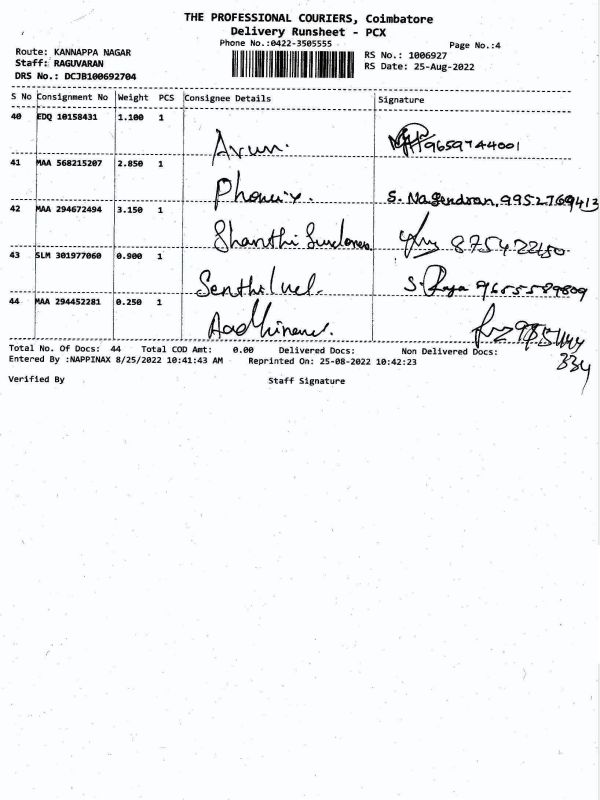 THE PROFESSIONAL COURIERS, Coimbatore
Delivery Runsheet - PCX
Phone No.:0422-3505555
Page No.:4
Route: KANNAPPA NAGAR
RS No.: 1006927
Staff: RAGUVARAN
RS Date: 25-Aug-2022
DRS No.: DCJB100692704
S No Consignment No Weight PCS Consignee Details Signature
40 EDQ 10158431 1.100 1
Arun. 9659744001
41 MAA 568215207 2.850 1
Phonix. S. Nagendran, 9952769413
42 MAA 294672494 3.150 1
Shanthi
43 SLM 301977060 0.900 1
Senthilvel. S. 9655589809
44 MAA 294452281 0.250 1
334
Total No. Of Docs: 44 Total COD Amt: 0.00 Delivered Docs: Non Delivered Docs:
Entered By :NAPPINAX 8/25/2022 10:41:43 AM Reprinted On: 25-08-2022 10:42:23
Verified By Staff Signature